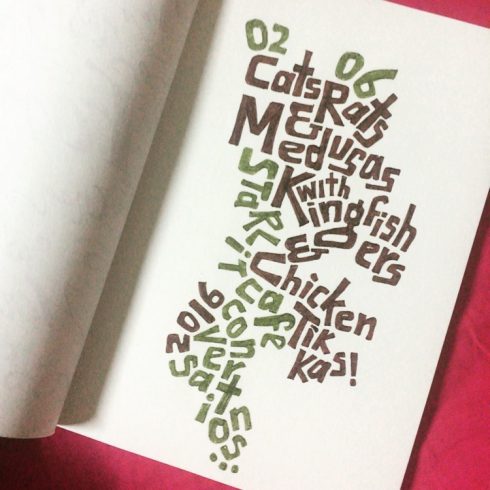 02 06
Cats Rats
&
Medusas
with
Kingfish
ers
&
Chicken
Tik
kas!
STaRLiT cafe
con
ver
satio
ns:
2016